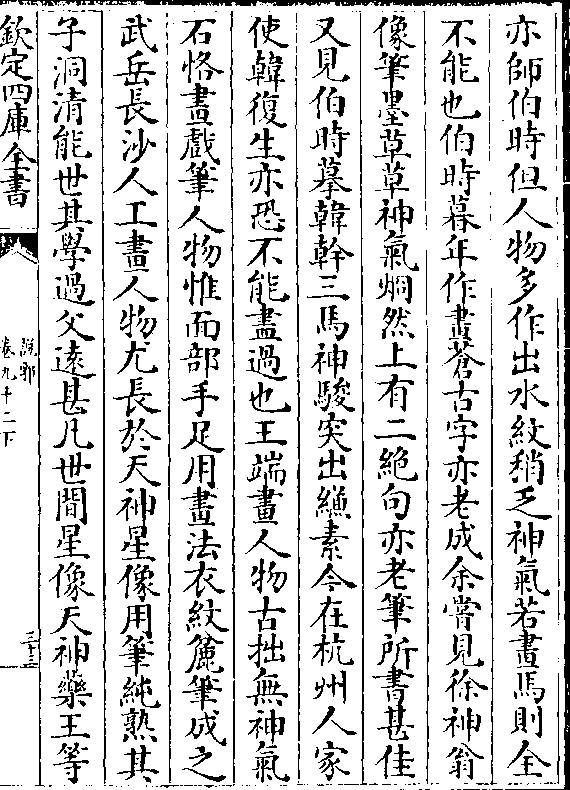 亦師伯時但人物多作出水紋稍乏神氣若畫馬則全
不能也伯時暮年作畫蒼古字亦老成余嘗見徐神翁
像筆墨草草神氣烱然上有二絶句亦老筆所書甚佳
又見伯時摹韓幹三馬神駿突出縑素今在杭州人家
使韓復生亦恐不能盡過也王端畫人物古拙無神氣
石恪畫戲筆人物惟面部手足用畫法衣紋麄筆成之
武岳長沙人工畫人物尤長於天神星像用筆純熟其
子洞清能世其學過父遠甚凡世間星像天神藥王等
欽定四庫全書
說郛
卷九十二下
三十三